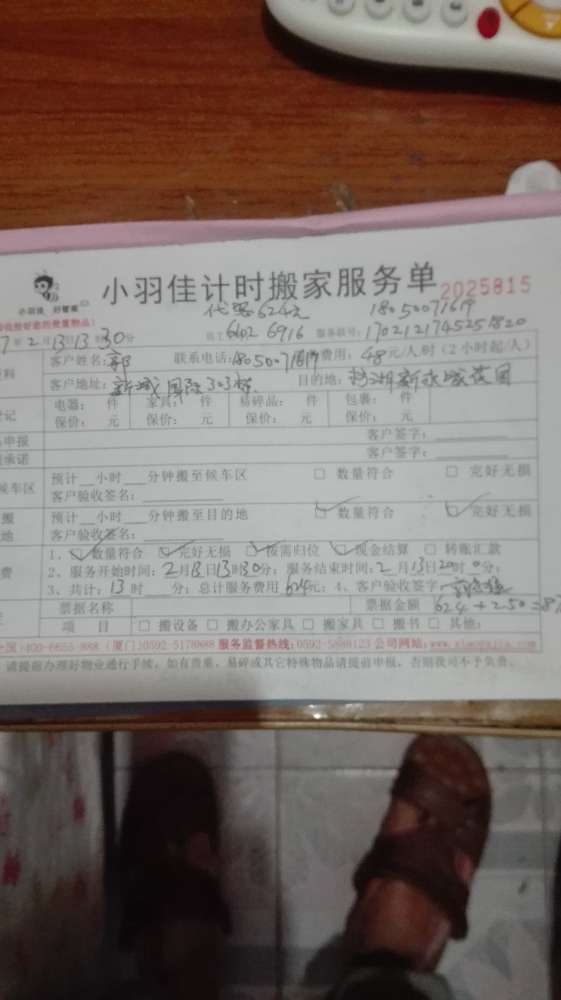 小羽佳 好管家
小羽佳计时搬家服务单 2025815
代客624元 18050071619
6102 6916 服务联号: 1702121745251820
7年2月13日13时30分
客户姓名: 郭 联系电话: 18050071619 费用: 48元/人/时 (2小时起/人)
客户地址: 新城国际303 目的地:
电器: 件 家具: 件 易碎品: 件 包裹: 件
保价: 元 保价: 元 保价: 元 保价: 元
申报 客户签字:
承诺 客户签字:
预计__小时__分钟搬至候车区 □ 数量符合 □ 完好无损
候车区 客户验收签名:
预计__小时__分钟搬至目的地 □ 数量符合 □ 完好无损
客户验收签名:
1、□ 数量符合 □ 完好无损 □ 按需归位 □ 现金结算 □ 转账汇款
2、服务开始时间: 2月13日13时30分; 服务结束时间: 2月13日20时0分;
3、共计: 13时 分; 总计服务费用 624元; 4、客户验收签字
票据名称 票据金额 624+250=87
项 目 □ 搬设备 □ 搬办公家具 □ 搬家具 □ 搬书 □ 其他:
国)400-6655-888 (厦门)0592-5178888 服务监督热线:0592-5888123 公司网站:www.xiaoyujia.com
请提前办理好物业通行手续, 如有贵重、易碎或其它特殊物品请提前申报, 否则我司不予负责。